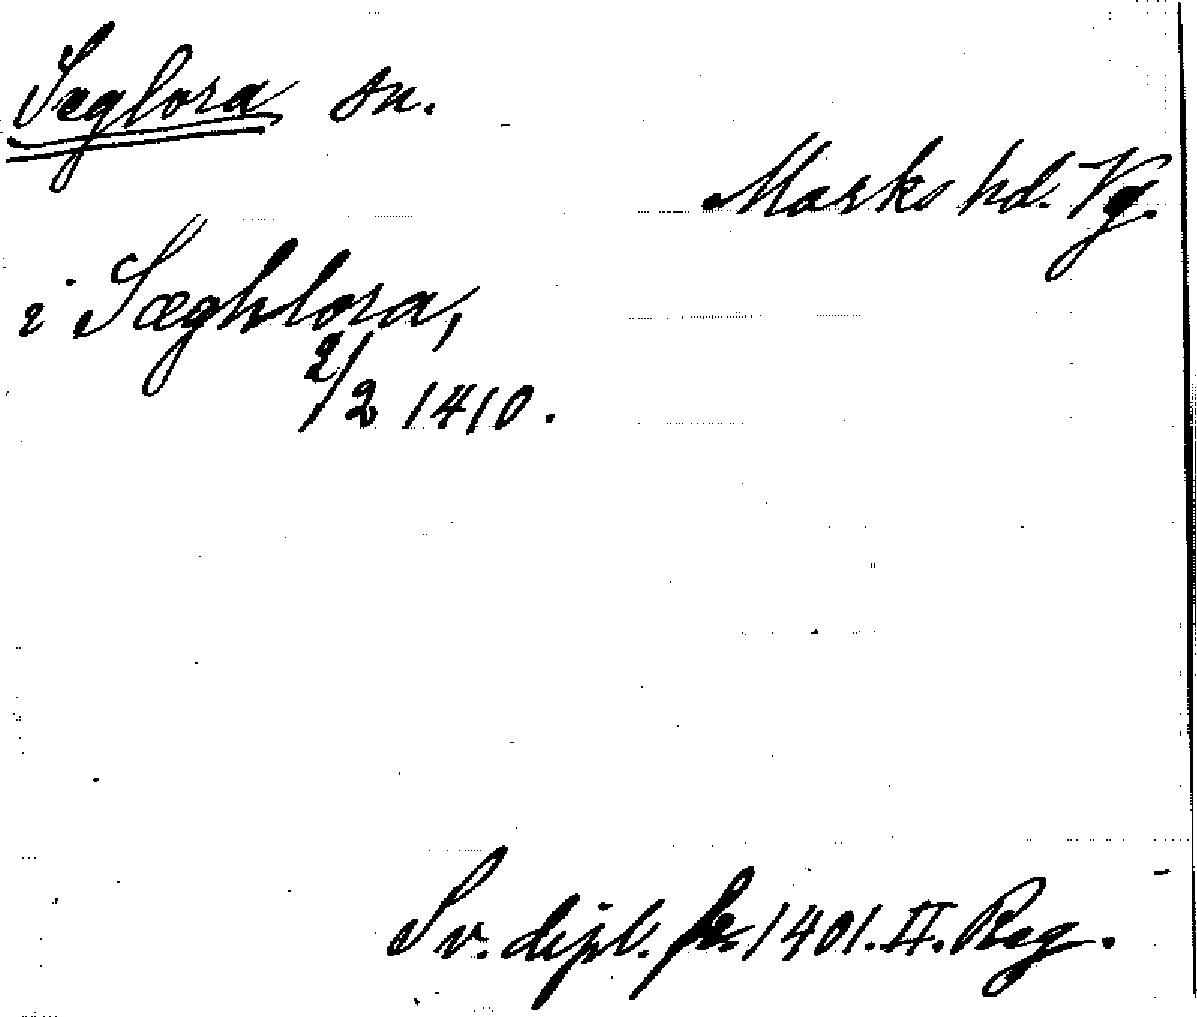 Seglora sn.
Marks hd. Vg.
i Sæghlora,
2/2 1410.
Sv. dipl. fr. 1401. II. Reg.